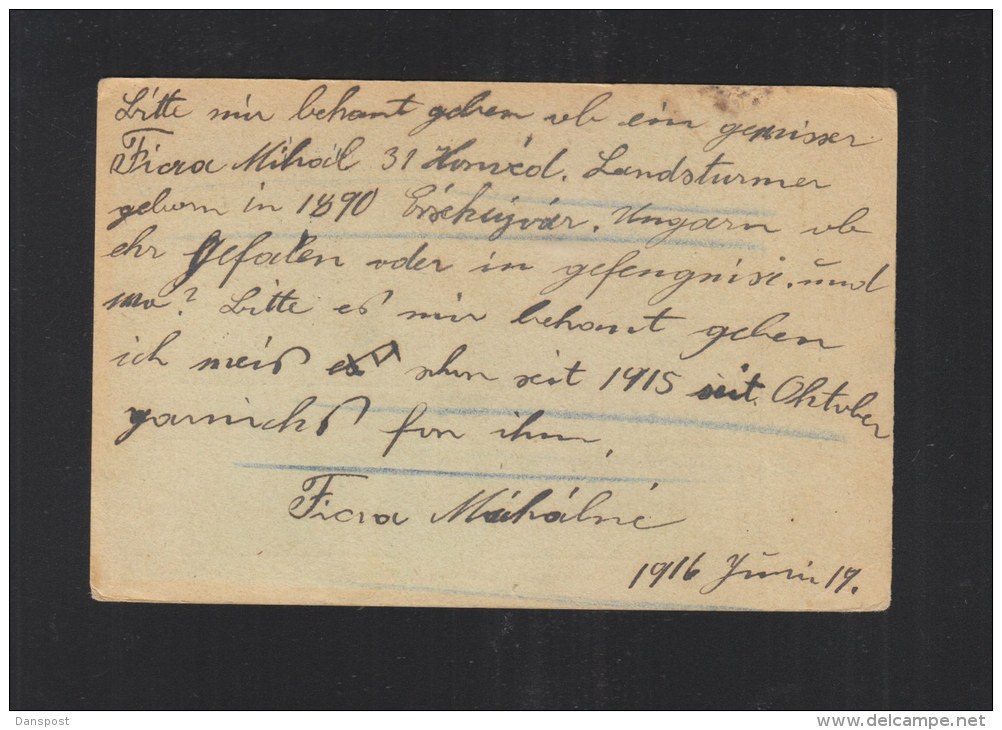 Bitte mir bekant geben ob ein gewisser
Ficza Mihál 31 Honvéd. Landsturmer
geborn in 1890 Érsekujvár. Ungarn ob
ehr Gefalen oder in gefengnise. und
wo? Bitte es mir bekant geben
ich weis schon seit 1915 seit Oktober
garnichs fon ihm,
Ficza Mihálné
1916 Juni 19.
Danspost
delcampe.net